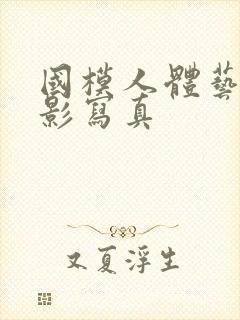 國模人體藝
影寫真
又夏浮生